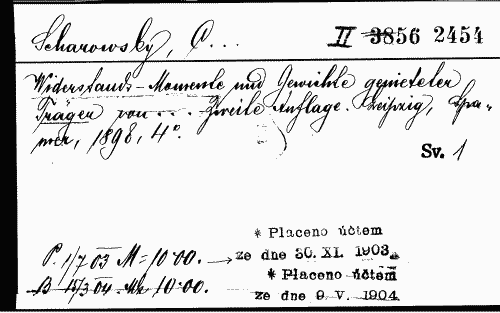 Scharowsky, C... II 3856 2454
Widerstands-Momente und Gewichte genieteter
Träger von ... Zweite Auflage. Leipzig, Spa-
mer, 1898, 4°.
Sv. 1
* Placeno účtem
P. 1/7 03 M = 10·00. → ze dne 30. XI. 1903.
* Placeno účtem
B 15/3 04. Mk 10·00.
ze dne 9 V. 1904